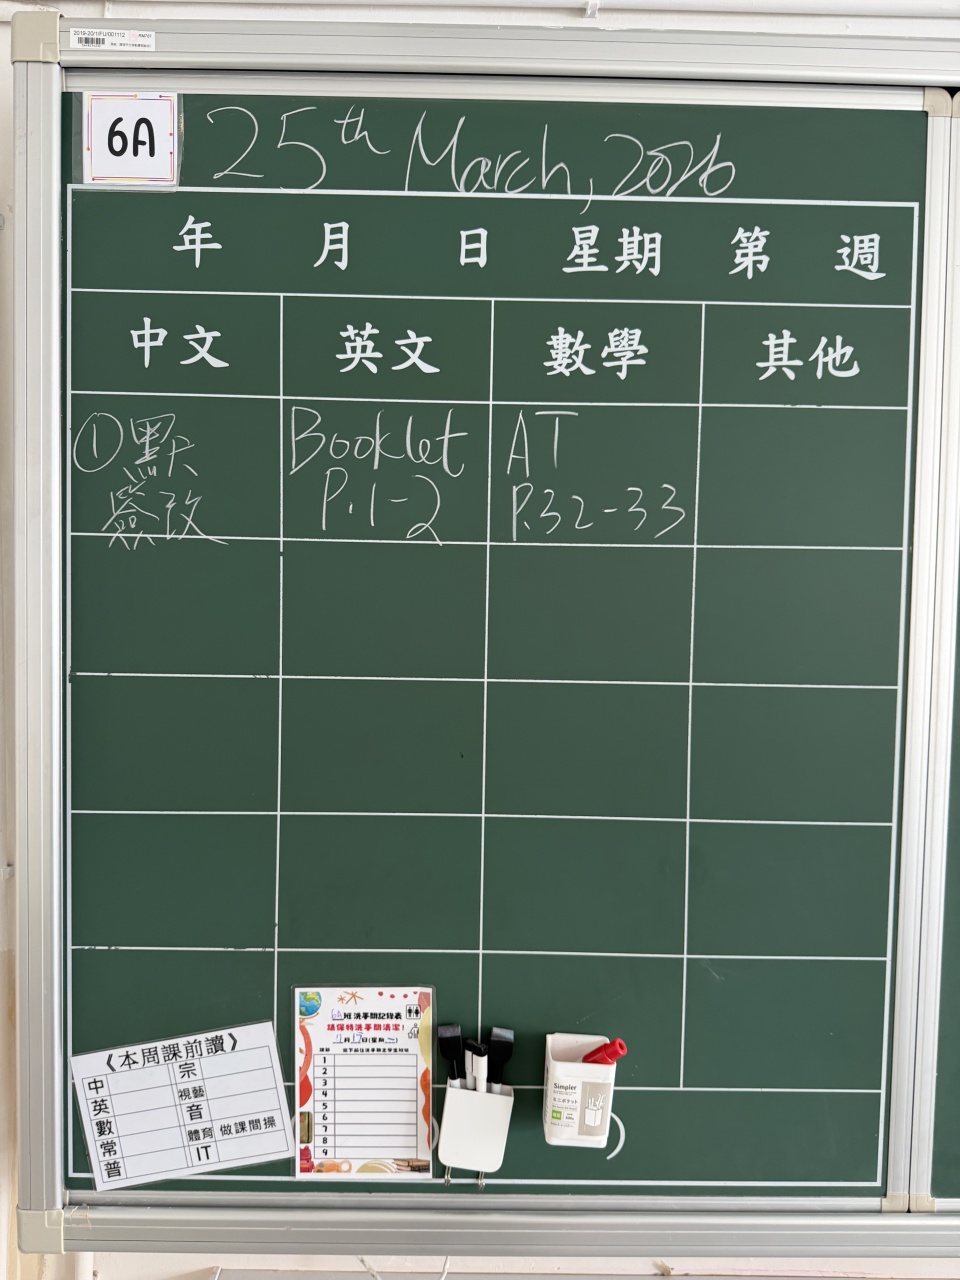 2019-20/1/FU/001112
RM707
6A
25th March, 2026
年 月 日 星期 第 週
中文 英文 數學 其他
①默
簽改
Booklet
P.1-2
AT
P.32-33
《本周課前讀》
中 宗
英 視藝
數 音
常 體育 做課間操
普 IT
6A班洗手間記錄表
請保持洗手間清潔！
1
2
3
4
5
6
7
8
9
Simpler
ミニポケット